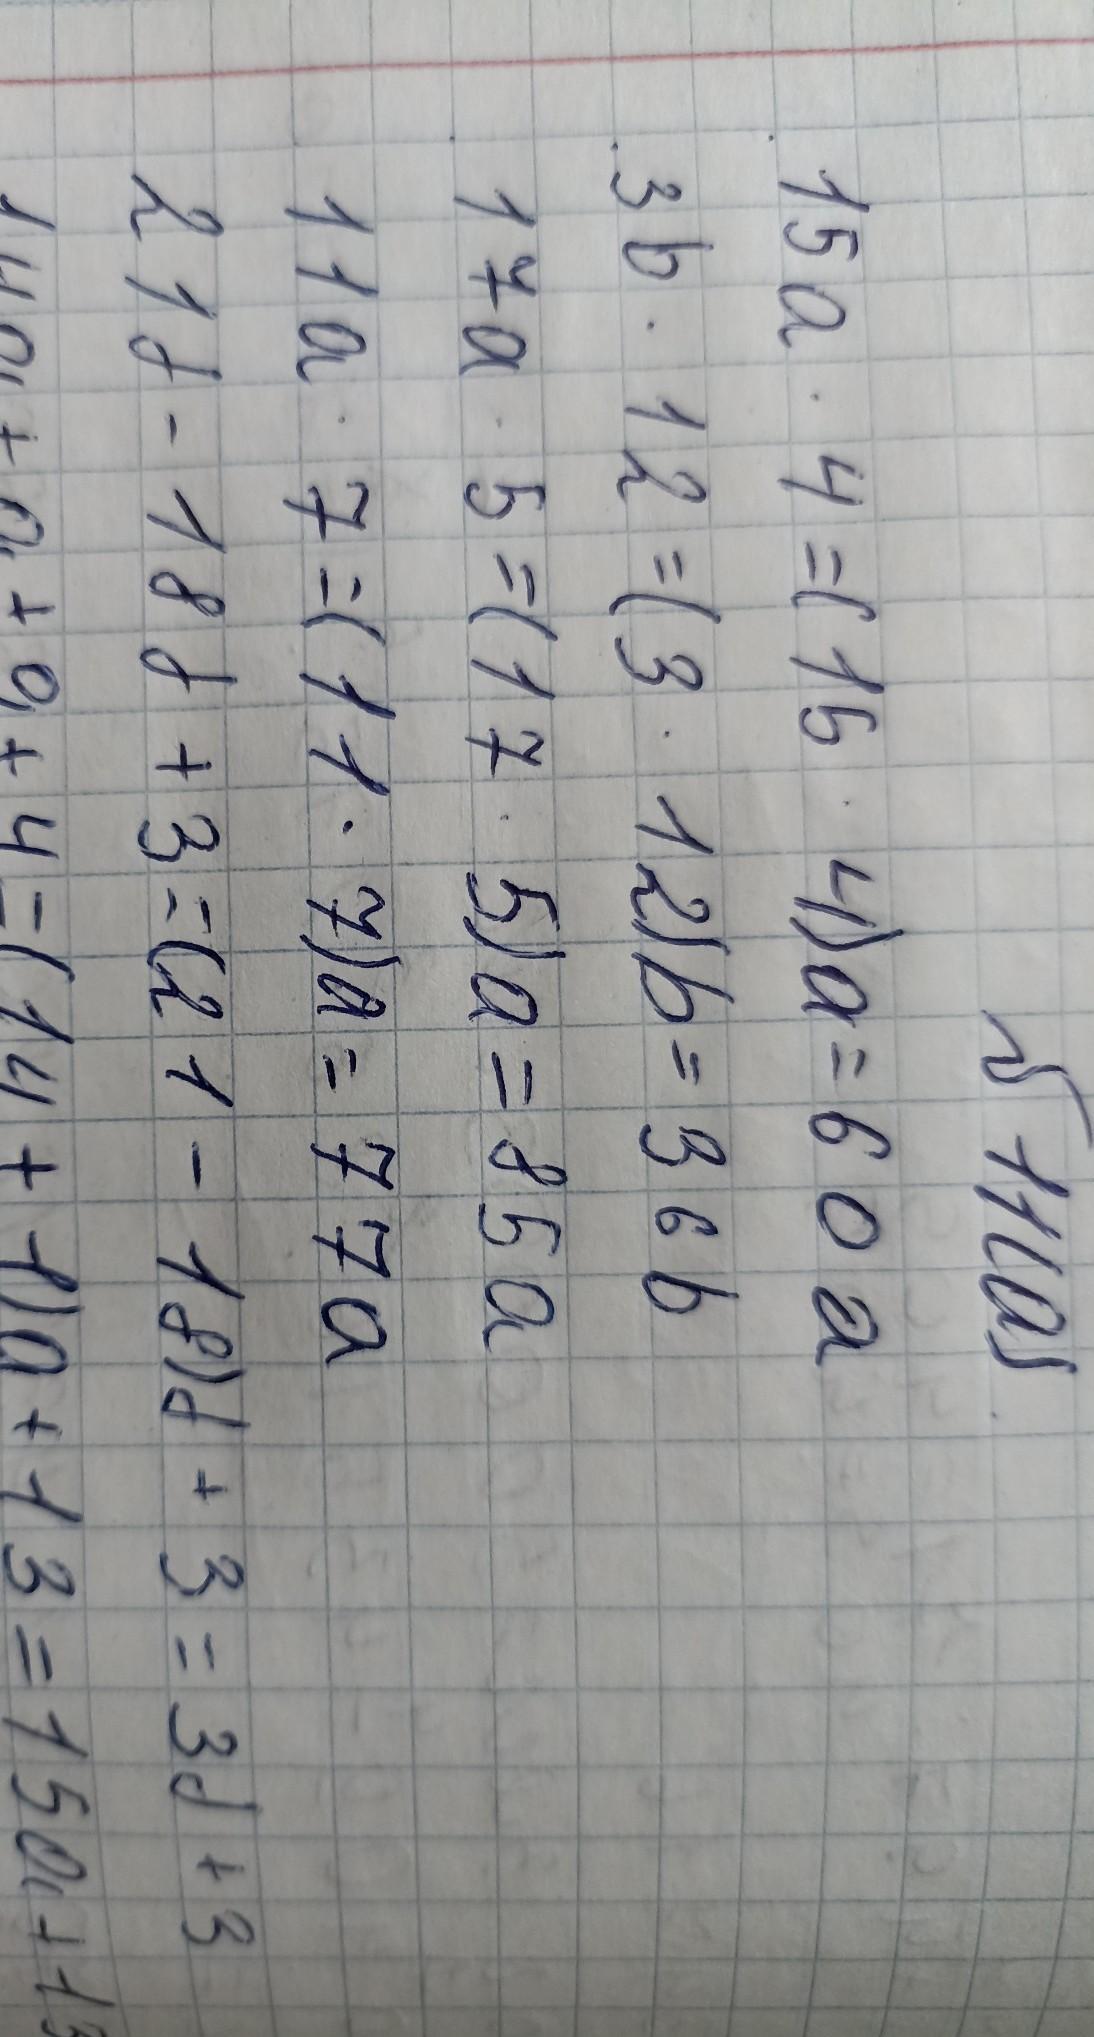 № 11(а)
15a · 4 = (15 · 4)a = 60a
3b · 12 = (3 · 12)b = 36b
17a · 5 = (17 · 5)a = 85a
11a · 7 = (11 · 7)a = 77a
21d - 18d + 3 = (21 - 18)d + 3 = 3d + 3
14a + a + 9 + 4 = (14 + 1)a + 13 = 15a + 13